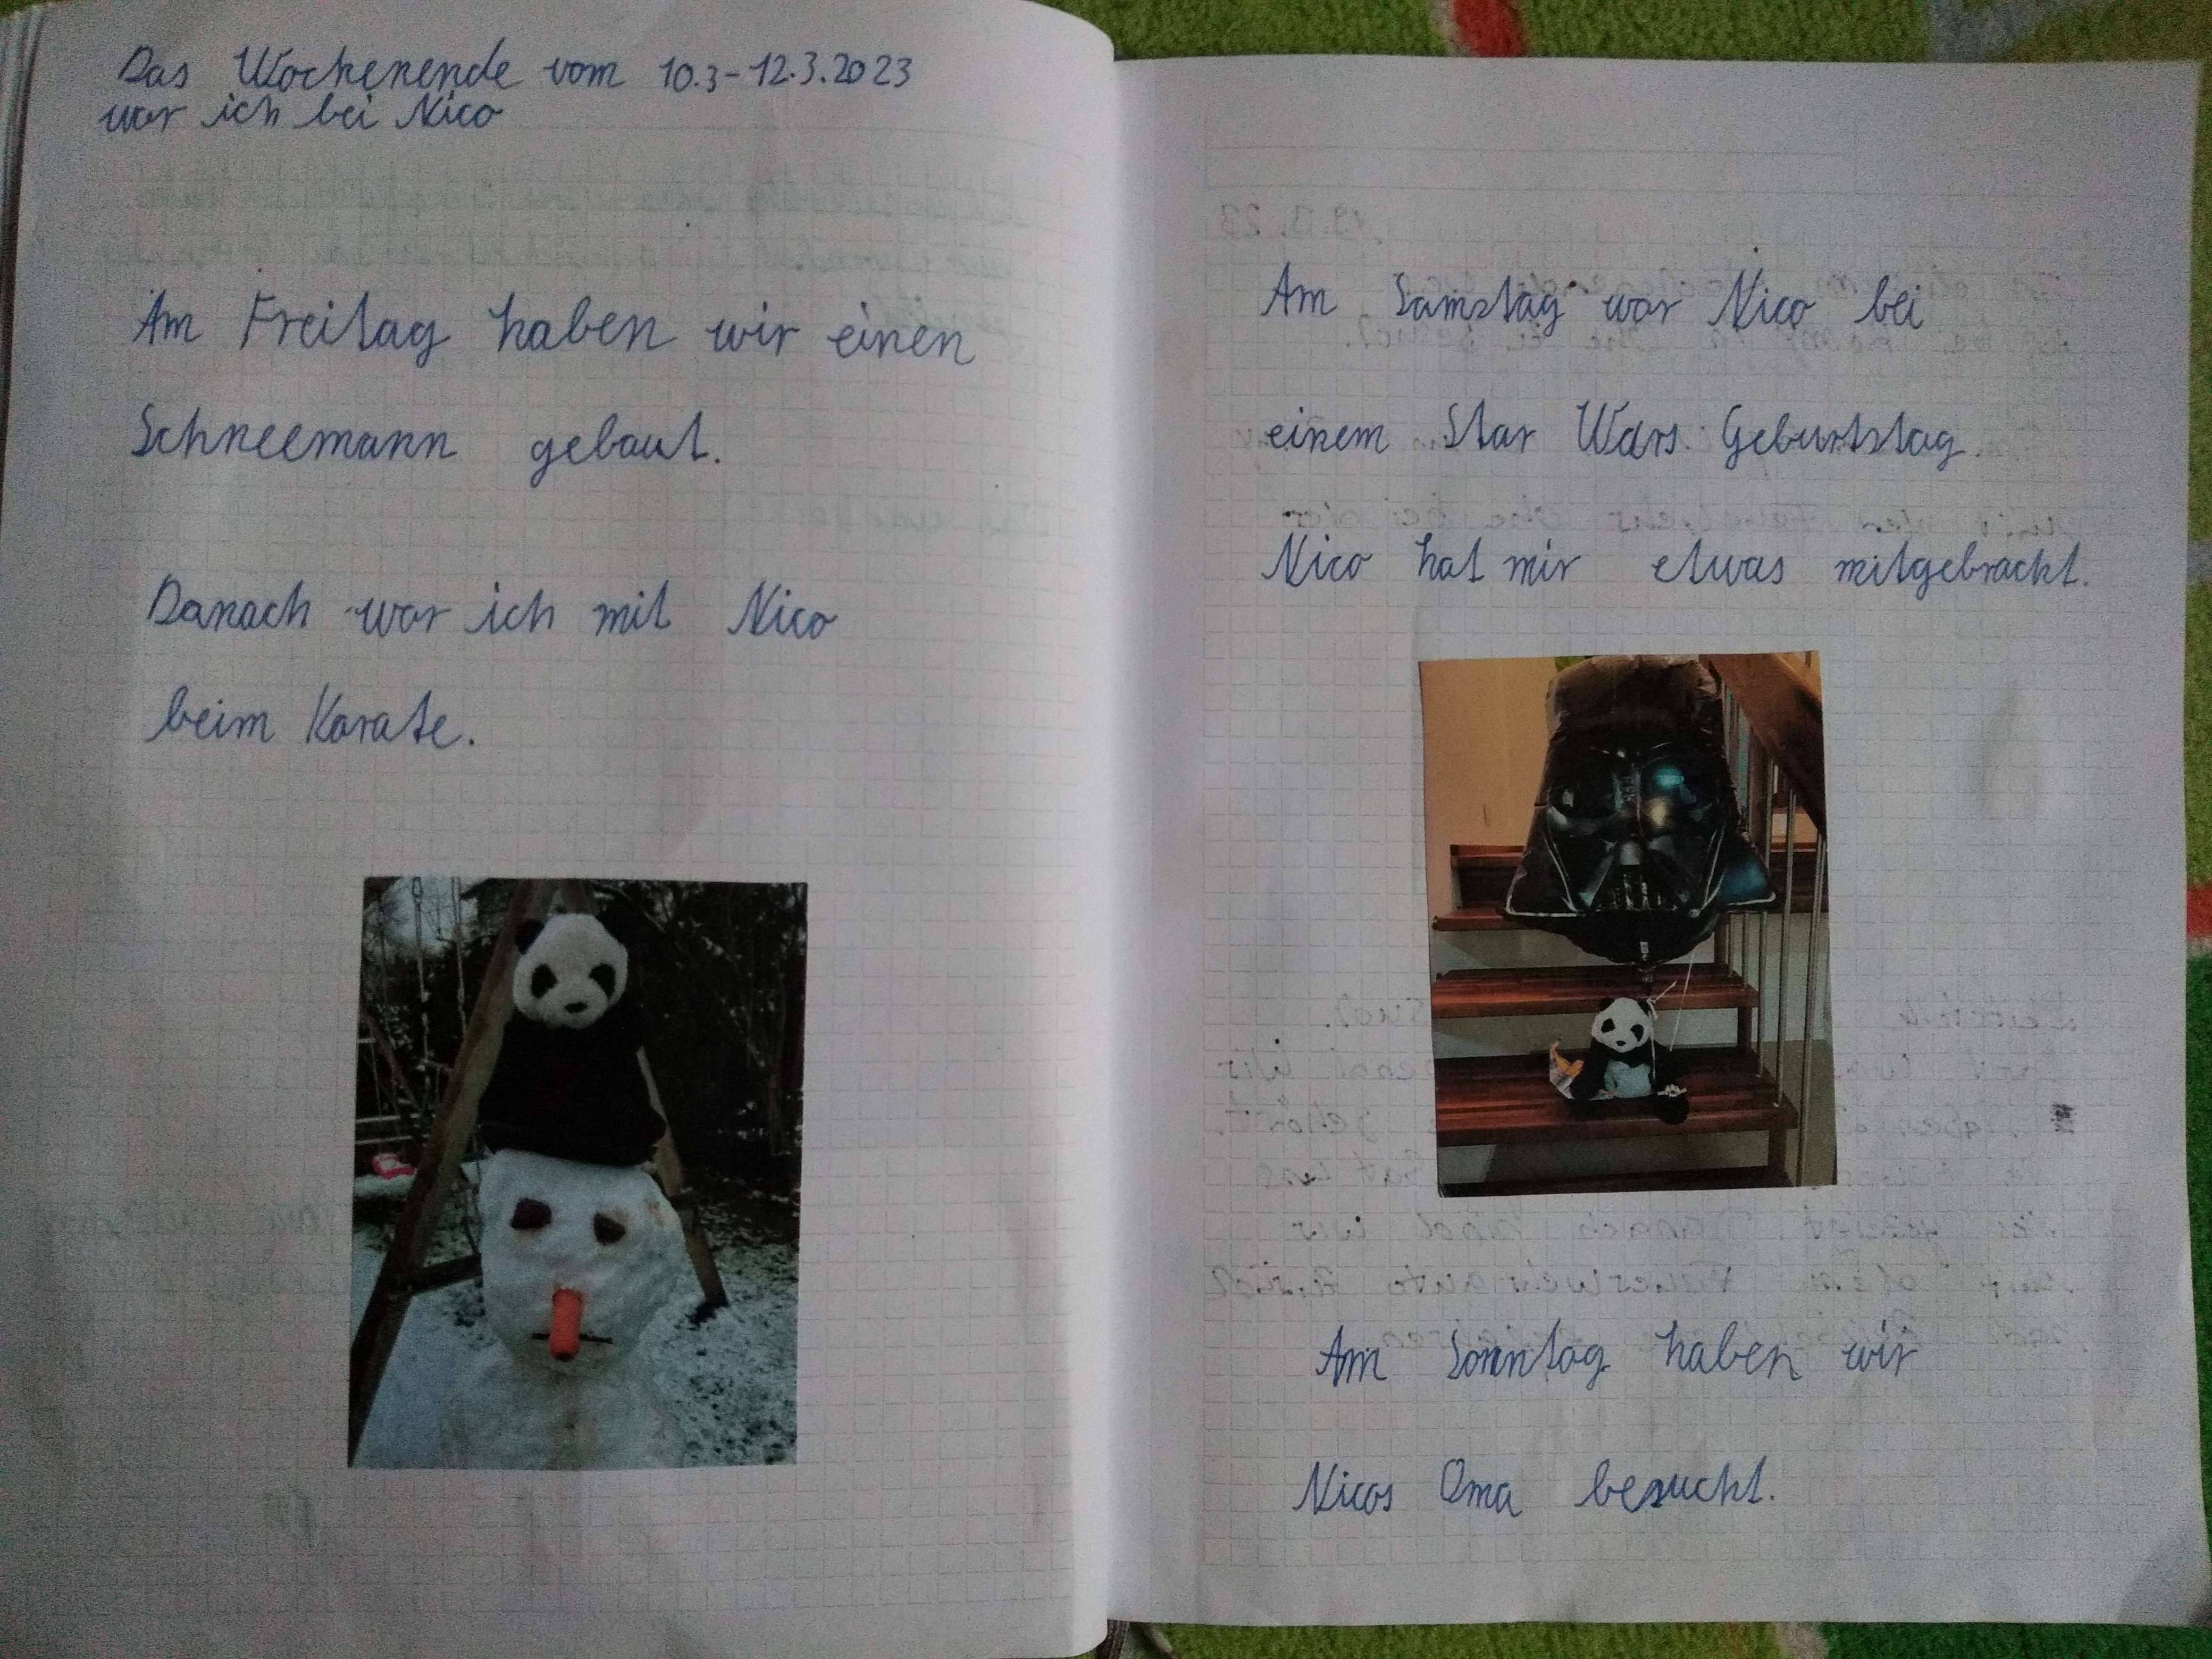 Das Wochenende vom 10.3-12.3.2023
war ich bei Nico
Am Freitag haben wir einen
Schneemann gebaut.
Danach war ich mit Nico
beim Karate.
Am Samstag war Nico bei
einem Star Wars Geburtstag.
Nico hat mir etwas mitgebracht.
Am Sonntag haben wir
Nicos Oma besucht.